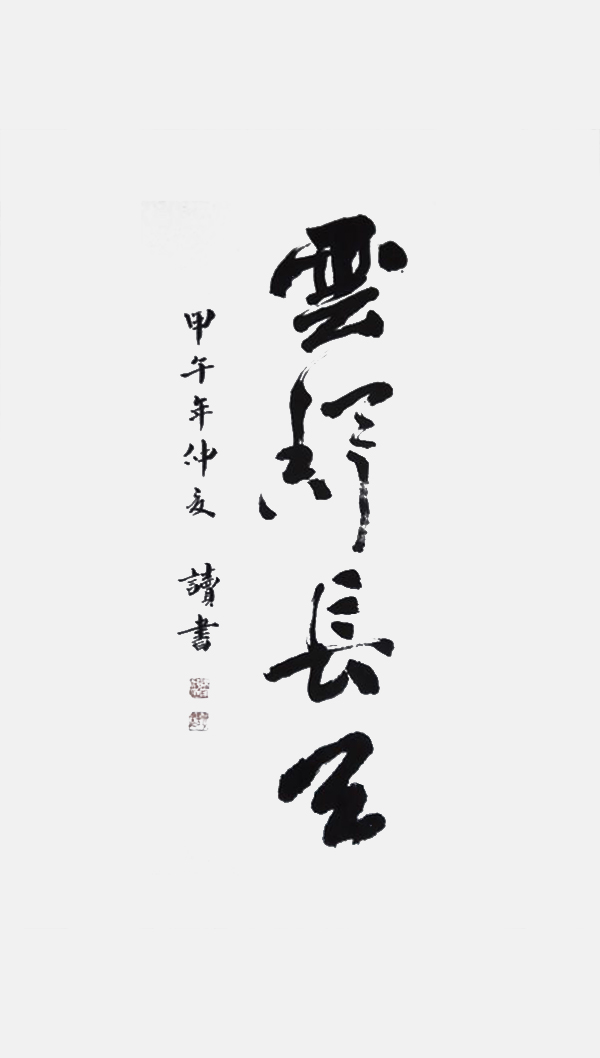 雲擁長天
甲午年仲夏 讀書